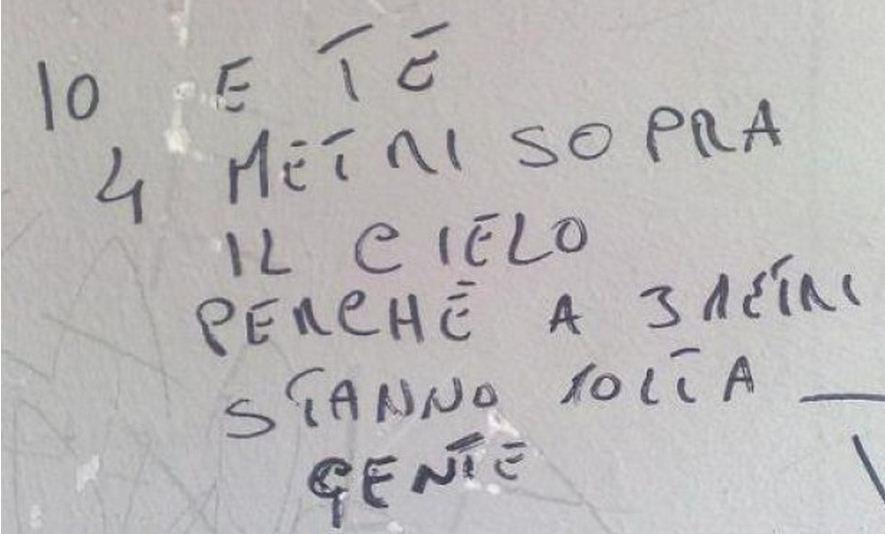 IO E TE
4 METRI SOPRA
IL CIELO
PERCHE A 3 METRI
STANNO MOLTA
GENTE